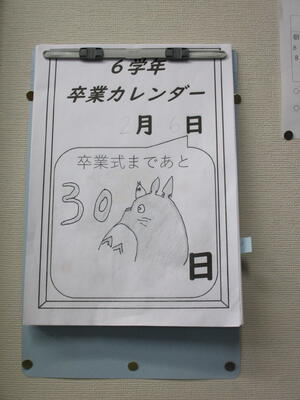 6学年
卒業カレンダー
2月6日
卒業式まであと
30
日